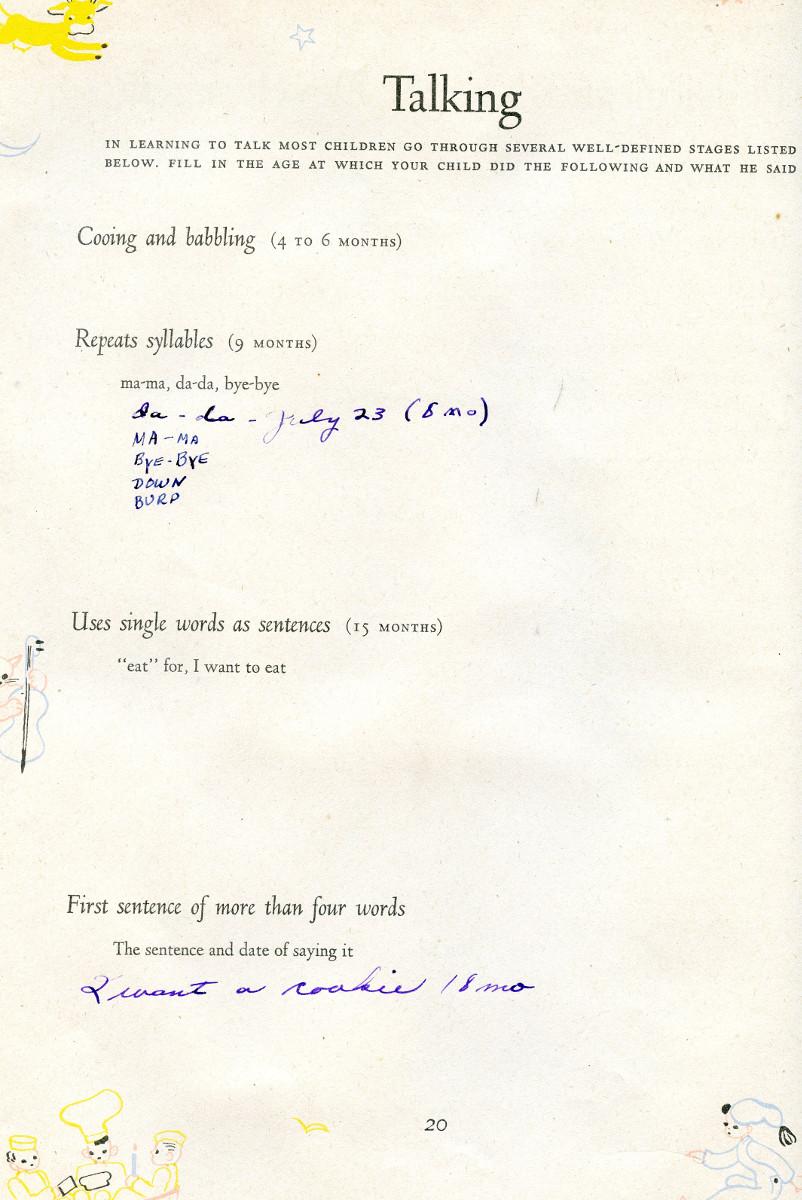 Talking
IN LEARNING TO TALK MOST CHILDREN GO THROUGH SEVERAL WELL-DEFINED STAGES LISTED
BELOW. FILL IN THE AGE AT WHICH YOUR CHILD DID THE FOLLOWING AND WHAT HE SAID
Cooing and babbling (4 TO 6 MONTHS)
Repeats syllables (9 MONTHS)
ma-ma, da-da, bye-bye
da - da - July 23 (8 mo)
MA-MA
BYE-BYE
DOWN
BURP
Uses single words as sentences (15 MONTHS)
“eat” for, I want to eat
First sentence of more than four words
The sentence and date of saying it
I want a cookie 18 mo
20